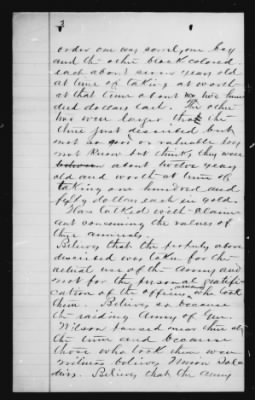 3
order one was sorrel one bay
and the other black colored
each about seven years old
at time of taking & worth
at that time about two hun
dred dollars each. The other
two were larger than the
three just described but
not so or valuable
not known but thinks they were
about twelve years
old and worth at time of
taking one hundred and
fifty dollars each in gold.
Has talked with Claim
ant concerning the values of
these animals.
Believes that the property above
described was taken for the
actual use of the Army and
not for the personal gratifi
cation of the officers or men who took
them. Believes so because
the raiding Army of Gen.
Wilson passed near there at
the time and because
those who took them were
Union Sol
diers. Believes that the Army